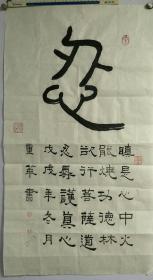 忍
瞋是心中火
能燒功德林
欲行菩薩道
忍辱護真心
戊戌年冬月
重華書